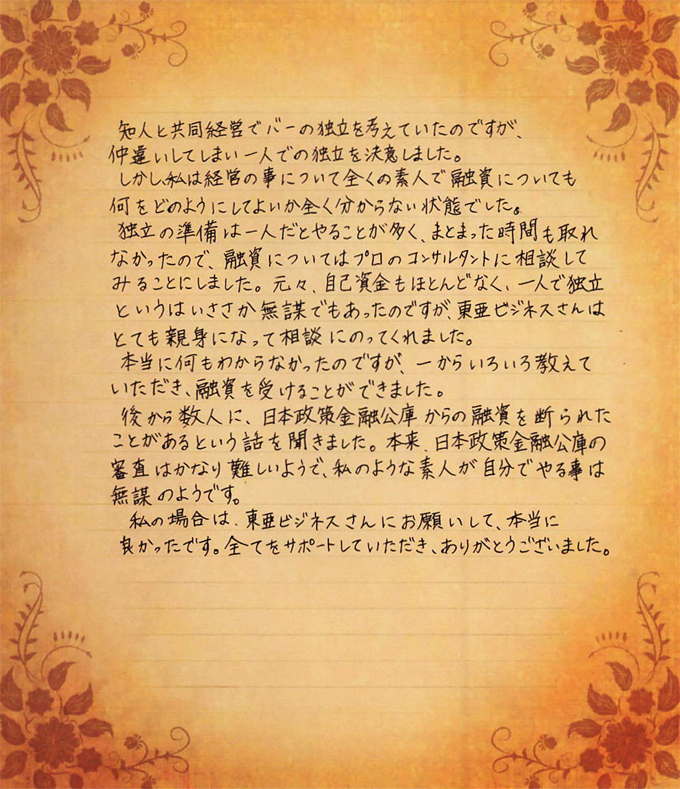 知人と共同経営でバーの独立を考えていたのですが、
仲違いしてしまい一人での独立を決意しました。
しかし、私は経営の事について全くの素人で融資についても
何をどのようにしてよいか全く分からない状態でした。
独立の準備は一人だとやることが多く、まとまった時間も取れ
なかったので、融資についてはプロのコンサルタントに相談して
みることにしました。元々、自己資金もほとんどなく、一人で独立
というはいささか無謀でもあったのですが、東亜ビジネスさんは
とても親身になって相談にのってくれました。
本当に何もわからなかったのですが、一からいろいろ教えて
いただき、融資を受けることができました。
後から数人に、日本政策金融公庫からの融資を断られた
ことがあるという話を聞きました。本来、日本政策金融公庫の
審査はかなり難しいようで、私のような素人が自分でやる事は
無謀のようです。
私の場合は、東亜ビジネスさんにお願いして、本当に
良かったです。全てをサポートしていただき、ありがとうございました。